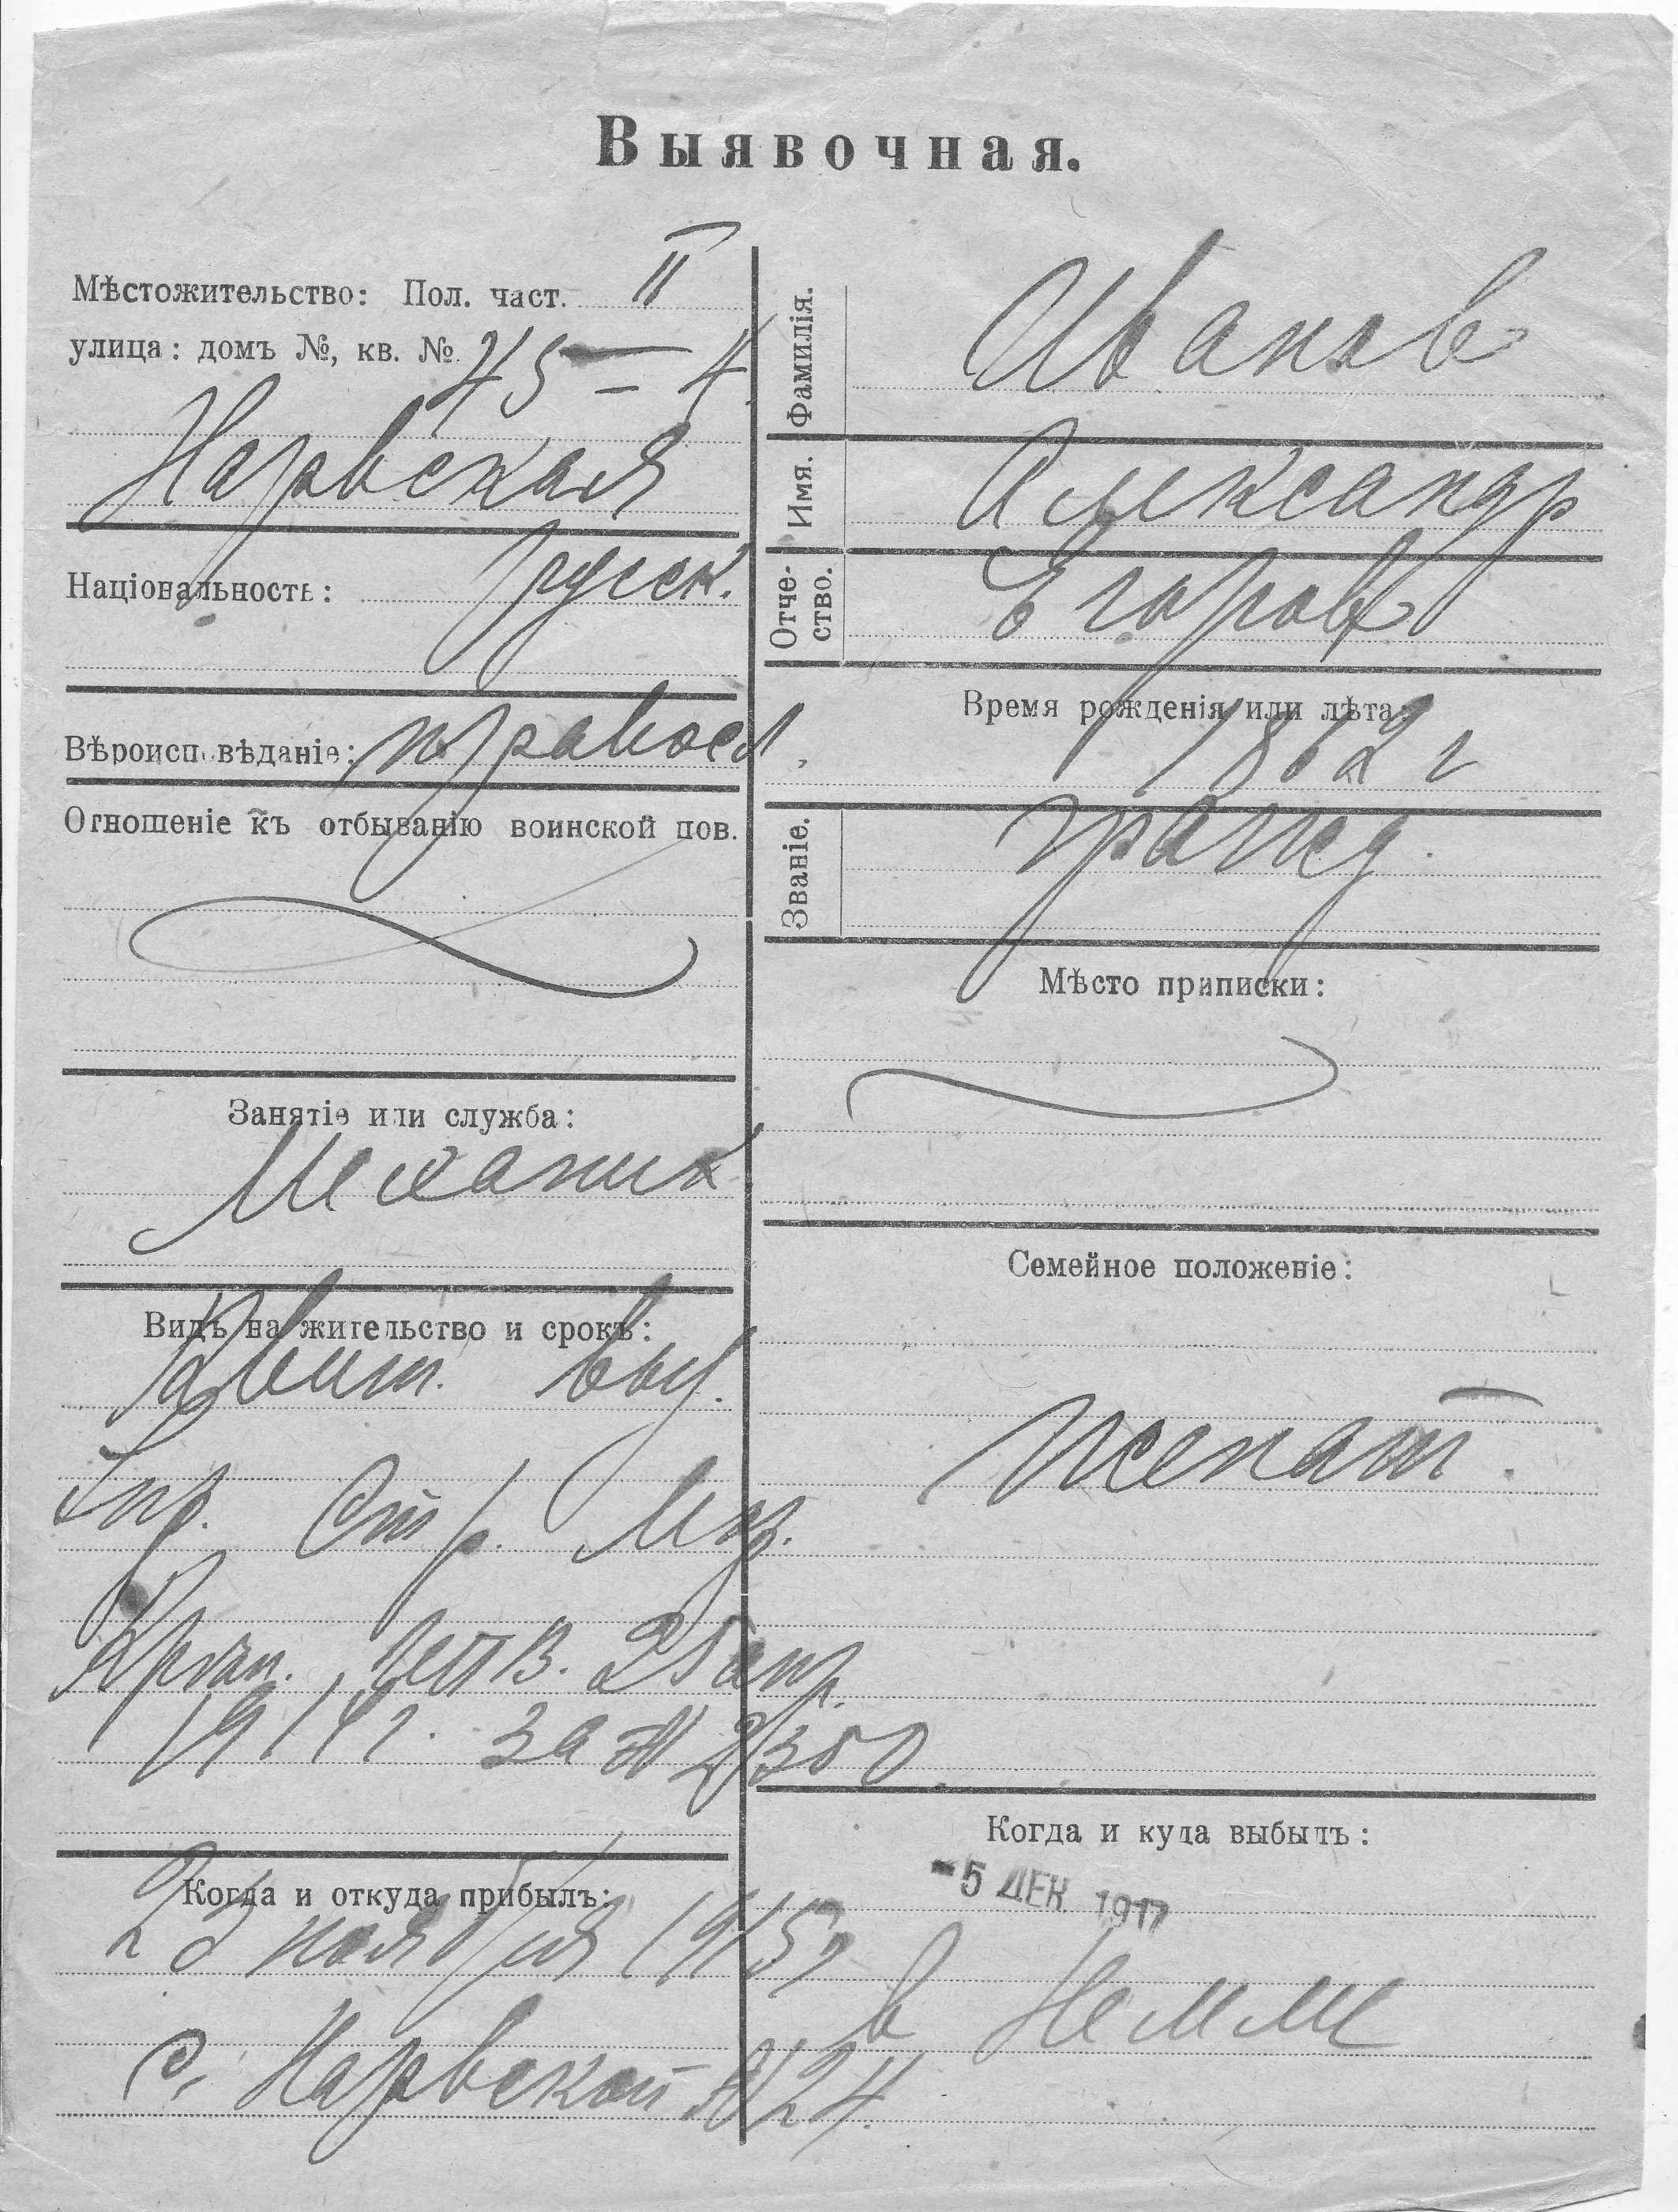 Выявочная.
Мѣстожительство: Пол. част. II
улица: домъ №, кв. № 45 — 4
Нарвская
Національность: русск.
Вѣроисповѣданіе: правосл.
Отношеніе къ отбыванію воинской пов.
Занятіе или служба:
Механик
Видъ на жительство и срокъ:
Квит. выд.
Упр. Стр. Мор.
Креп. Петра В. 25 апр.
1914 г. за № 2350
Когда и откуда прибылъ:
23 ноября 1915 г
с. Нарвской № 24.
Фамилія. Иванов
Имя. Александр
Отчество. Егоров
Время рожденія или лѣта:
1862 г
Званіе. гражд.
Мѣсто приписки:
Семейное положеніе:
женат.
Когда и куда выбылъ:
-5 ДЕК. 1917
в Немме